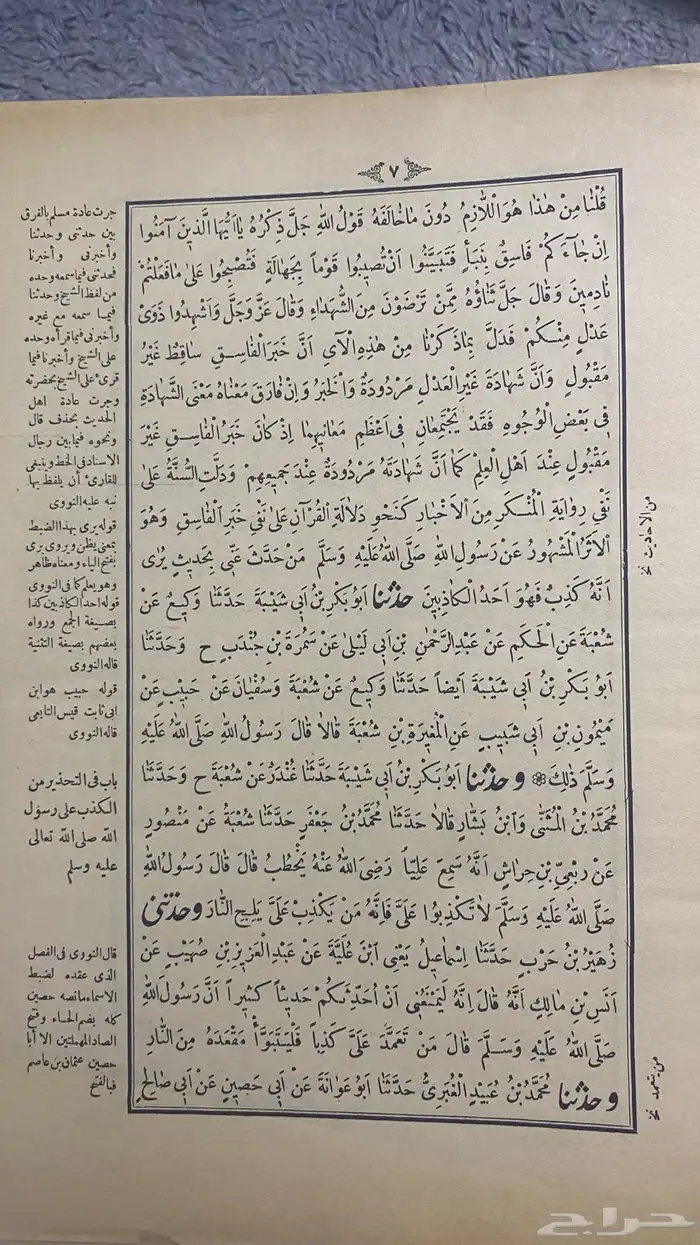 ٧
قُلْنَا مِنْ هٰذَا هُوَ اللَّازِمُ دُونَ مَا خَالَفَهُ قَوْلُ اللهِ جَلَّ ذِكْرُهُ يَا اَيُّهَا الَّذِينَ آمَنُوا
اِنْ جَاءَكُمْ فَاسِقٌ بِنَبَأٍ فَتَبَيَّنُوا اَنْ تُصِيبُوا قَوْماً بِجَهَالَةٍ فَتُصْبِحُوا عَلىٰ مَا فَعَلْتُمْ
نَادِمِينَ وَقَالَ جَلَّ ثَنَاؤُهُ مِمَّنْ تَرْضَوْنَ مِنَ الشُّهَدَاءِ وَقَالَ عَزَّ وَجَلَّ وَاَشْهِدُوا ذَوَىْ
عَدْلٍ مِنْكُمْ فَدَلَّ بِمَا ذَكَرْنَا مِنْ هٰذِهِ الْآىِ اَنَّ خَبَرَ الْفَاسِقِ سَاقِطٌ غَيْرُ
مَقْبُولٍ وَاَنَّ شَهَادَةَ غَيْرِ الْعَدْلِ مَرْدُودَةٌ وَالْخَبَرُ وَاِنْ فَارَقَ مَعْنَاهُ مَعْنَى الشَّهَادَةِ
فِى بَعْضِ الْوُجُوهِ فَقَدْ يَجْتَمِعَانِ فِى اَعْظَمِ مَعَانِيهِمَا اِذْ كَانَ خَبَرُ الْفَاسِقِ غَيْرَ
مَقْبُولٍ عِنْدَ اَهْلِ الْعِلْمِ كَمَا اَنَّ شَهَادَتَهُ مَرْدُودَةٌ عِنْدَ جَمِيعِهِمْ وَدَلَّتِ السُّنَّةُ عَلىٰ
نَفْىِ رِوَايَةِ الْمُنْكَرِ مِنَ الْاَخْبَارِ كَنَحْوِ دَلَالَةِ الْقُرْآنِ عَلىٰ نَفْىِ خَبَرِ الْفَاسِقِ وَهُوَ
الْاَثَرُ الْمَشْهُورُ عَنْ رَسُولِ اللهِ صَلَّى اللهُ عَلَيْهِ وَسَلَّمَ مَنْ حَدَّثَ عَنِّى بِحَدِيثٍ يُرٰى
اَنَّهُ كَذِبٌ فَهُوَ اَحَدُ الْكَاذِبِينَ حَدَّثَنَا اَبُو بَكْرِ بْنُ اَبِى شَيْبَةَ حَدَّثَنَا وَكِيعٌ عَنْ
شُعْبَةَ عَنِ الْحَكَمِ عَنْ عَبْدِ الرَّحْمٰنِ بْنِ اَبِى لَيْلىٰ عَنْ سَمُرَةَ بْنِ جُنْدَبٍ ح وَحَدَّثَنَا
اَبُو بَكْرِ بْنُ اَبِى شَيْبَةَ اَيْضاً حَدَّثَنَا وَكِيعٌ عَنْ شُعْبَةَ وَسُفْيَانَ عَنْ حَبِيبٍ عَنْ
مَيْمُونِ بْنِ اَبِى شَبِيبٍ عَنِ الْمُغِيرَةِ بْنِ شُعْبَةَ قَالَا قَالَ رَسُولُ اللهِ صَلَّى اللهُ عَلَيْهِ
وَسَلَّمَ ذٰلِكَ ۞ وَحَدَّثَنَا اَبُو بَكْرِ بْنُ اَبِى شَيْبَةَ حَدَّثَنَا غُنْدَرٌ عَنْ شُعْبَةَ ح وَحَدَّثَنَا
مُحَمَّدُ بْنُ الْمُثَنّٰى وَابْنُ بَشَّارٍ قَالَا حَدَّثَنَا مُحَمَّدُ بْنُ جَعْفَرٍ حَدَّثَنَا شُعْبَةُ عَنْ مَنْصُورٍ
عَنْ رِبْعِىِّ بْنِ حِرَاشٍ اَنَّهُ سَمِعَ عَلِيّاً رَضِىَ اللهُ عَنْهُ يَخْطُبُ قَالَ قَالَ رَسُولُ اللهِ
صَلَّى اللهُ عَلَيْهِ وَسَلَّمَ لَا تَكْذِبُوا عَلَىَّ فَاِنَّهُ مَنْ يَكْذِبْ عَلَىَّ يَلِجِ النَّارَ وَحَدَّثَنِى
زُهَيْرُ بْنُ حَرْبٍ حَدَّثَنَا اِسْمَاعِيلُ يَعْنِى ابْنَ عُلَيَّةَ عَنْ عَبْدِ الْعَزِيزِ بْنِ صُهَيْبٍ عَنْ
اَنَسِ بْنِ مَالِكٍ اَنَّهُ قَالَ اِنَّهُ لَيَمْنَعُنِى اَنْ اُحَدِّثَكُمْ حَدِيثاً كَثِيراً اَنَّ رَسُولَ اللهِ
صَلَّى اللهُ عَلَيْهِ وَسَلَّمَ قَالَ مَنْ تَعَمَّدَ عَلَىَّ كَذِباً فَلْيَتَبَوَّأْ مَقْعَدَهُ مِنَ النَّارِ
وَحَدَّثَنَا مُحَمَّدُ بْنُ عُبَيْدٍ الْغُبَرِىُّ حَدَّثَنَا اَبُو عَوَانَةَ عَنْ اَبِى حَصِينٍ عَنْ اَبِى صَالِحٍ
جرت عادة مسلم بالفرق
بين حدثنى وحدثنا
وأخبرنى وأخبرنا
فحدثنى فيما سمعه وحده
من لفظ الشيخ وحدثنا
فيما سمعه مع غيره
وأخبرنى فيما قرأه وحده
على الشيخ وأخبرنا فيما
قرئ على الشيخ بحضرته
وجرت عادة اهل
الحديث بحذف قال
ونحوه فيما بين رجال
الاسناد فى الخط وينبغى
للقارئ أن يلفظ بها
نبه عليه النووى
قوله يرى بهذا الضبط
بمعنى يظن ويروى يرى
بفتح الياء ومعناه ظاهر
وهو يعلم كما فى النووى
قوله احد الكاذبين كذا
بصيغة الجمع ورواه
بعضهم بصيغة التثنية
قاله النووى
قوله حبيب هو ابن
ابى ثابت قيس التابعى
قاله النووى
باب فى التحذير من
الكذب على رسول
الله صلى الله تعالى
عليه وسلم
قال النووى فى الفصل
الذى عقده لضبط
الاسماء ما نصه حصين
كله بضم الحاء وفتح
الصاد المهملتين الا أبا
حصين عثمان بن عاصم
فبالفتح
من الاحاديث نخ
من تعمد نخ
حراج